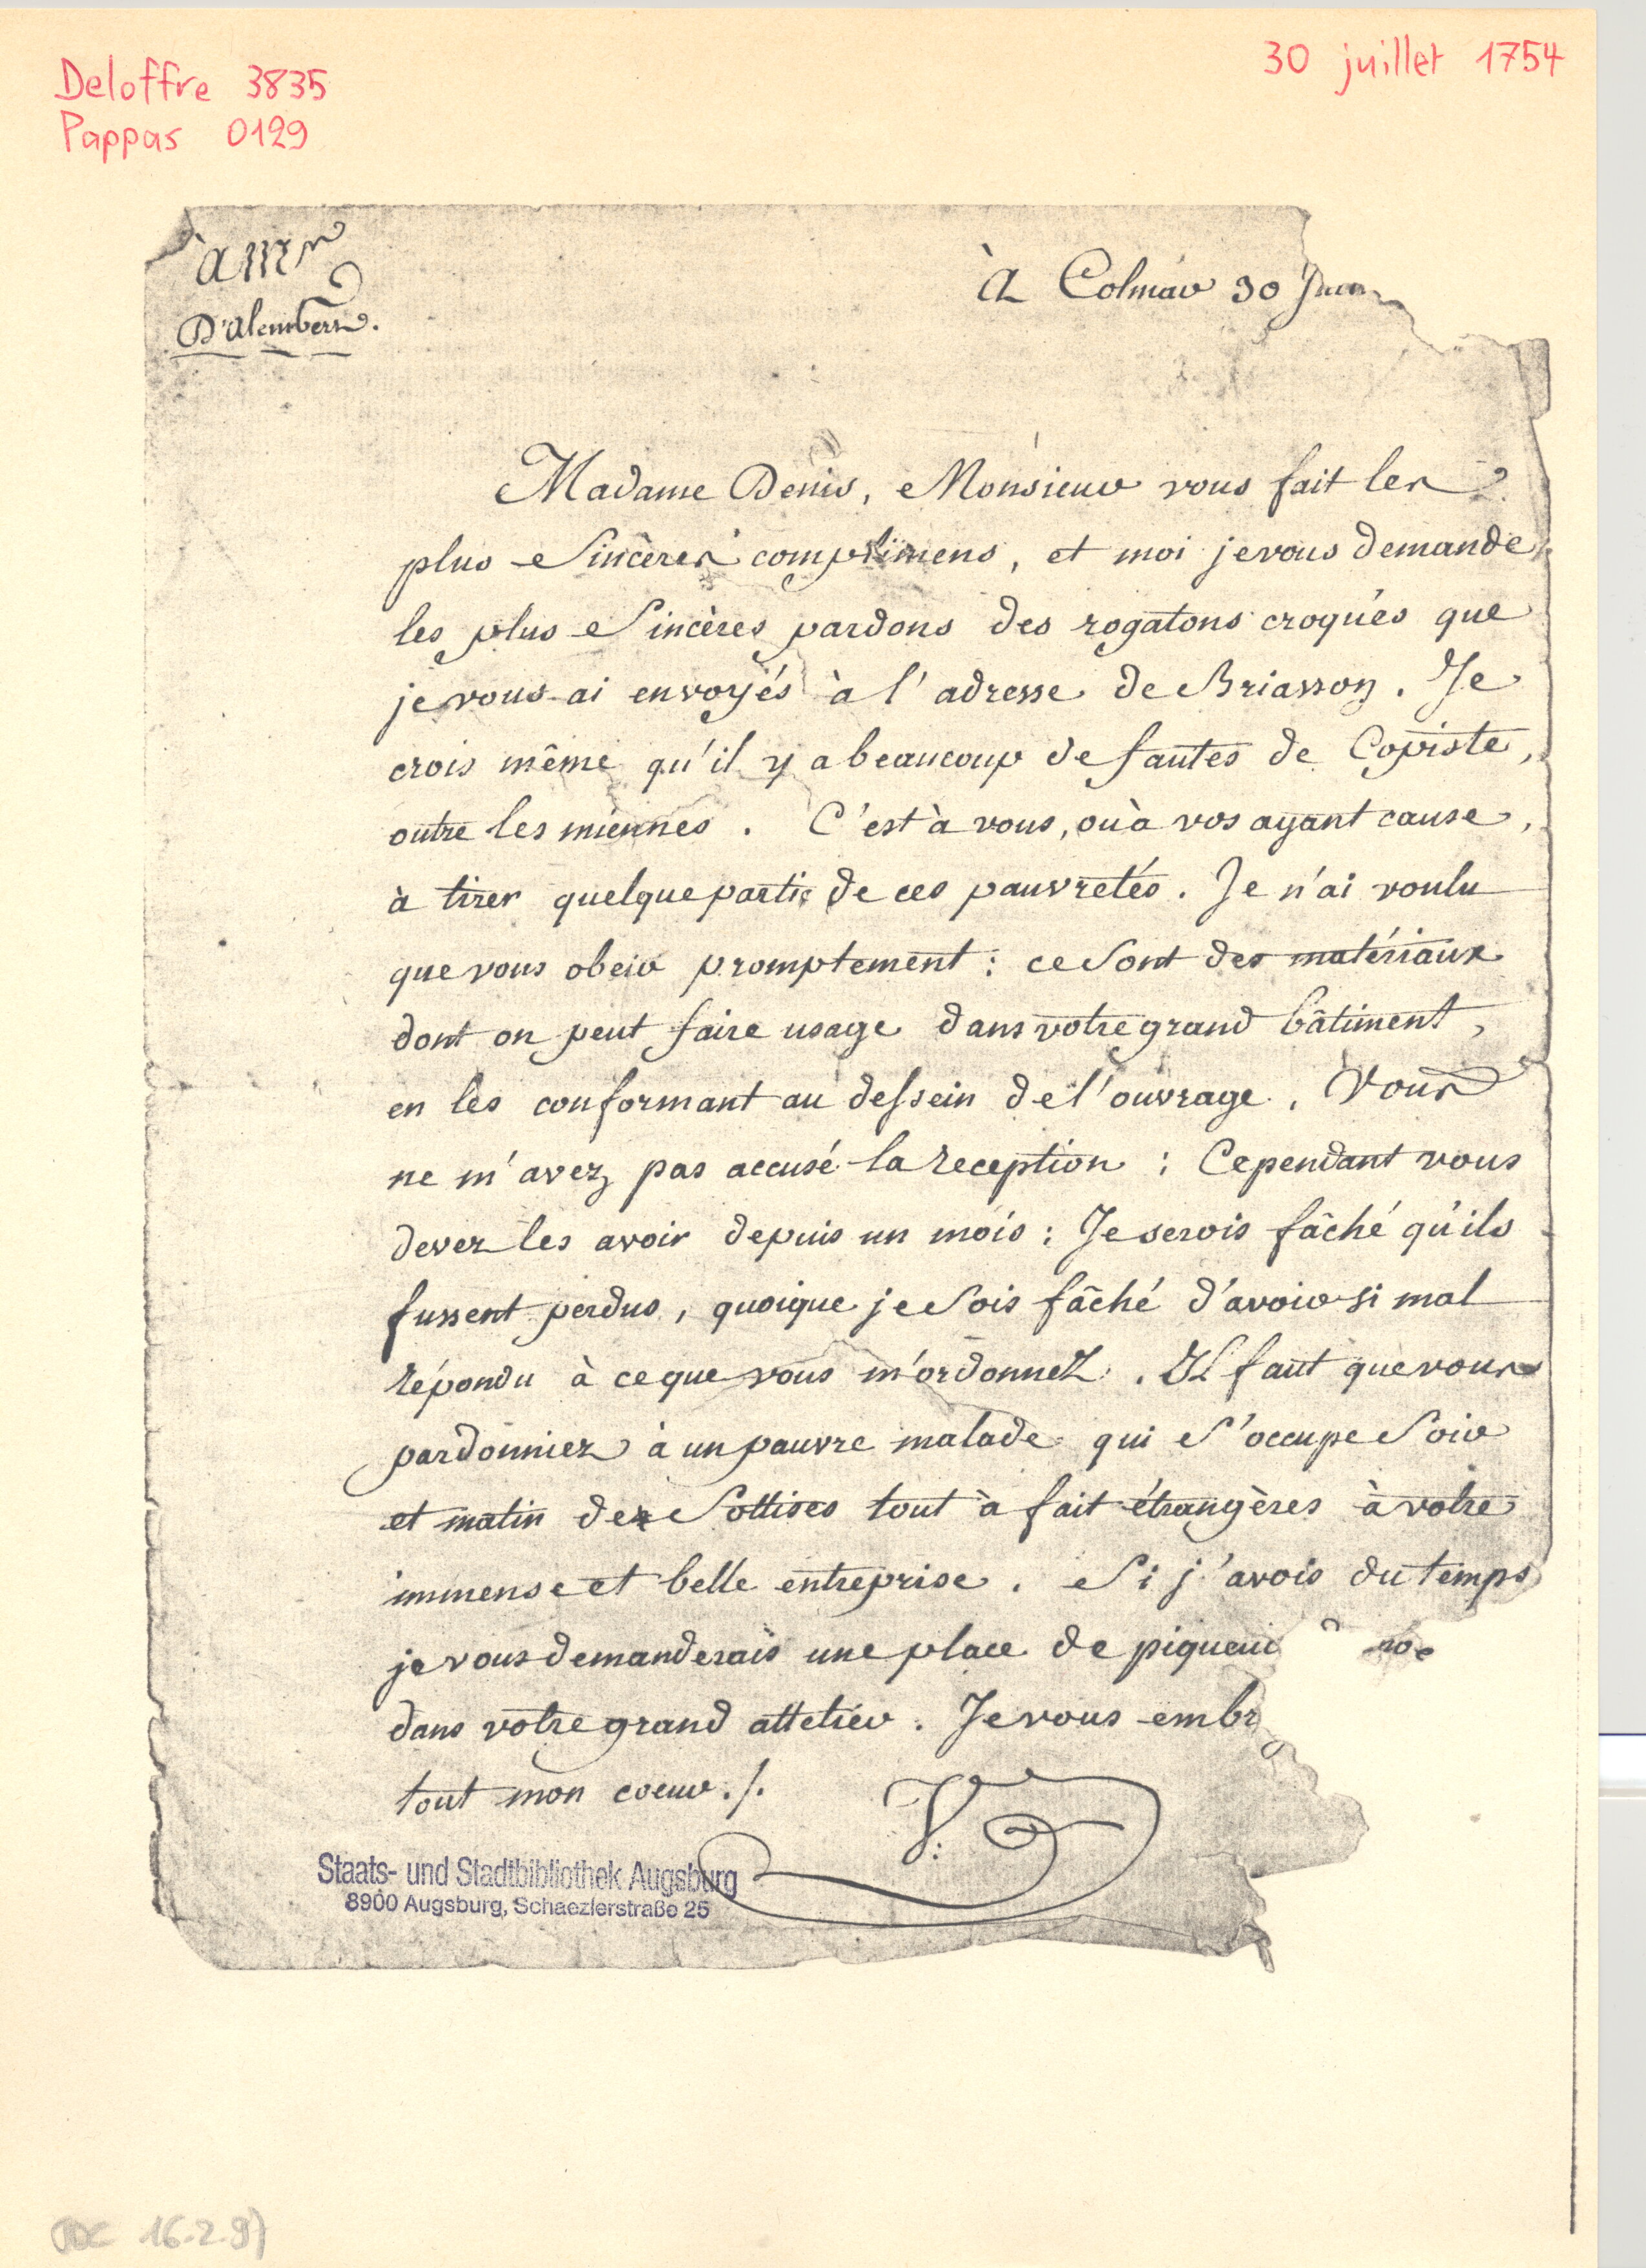 Deloffre 3835
Pappas 0129
30 juillet 1754
à Mr
D'Alembert.
à Colmar 30
Madame Denis, Monsieur vous fait les
plus Sincères complimens, et moi je vous demande
les plus Sincères pardons des rogatons croqués que
je vous ai envoyés à l'adresse de Briasson. Je
crois même qu'il y a beaucoup de fautes de Copiste,
outre les miennes. C'est à vous, ou à vos ayant cause,
à tirer quelque partie de ces pauvretés. Je n'ai voulu
que vous obeir promptement : ce Sont des matériaux
dont on peut faire usage dans votre grand bâtiment,
en les conformant au dessein de l'ouvrage. Vous
ne m'avez pas accusé la reception : Cependant vous
devez les avoir depuis un mois : Je serois fâché qu'ils
fussent perdus, quoique je Sois fâché d'avoir si mal
répondu à ce que vous m'ordonnez. Il faut que vous
pardonniez à un pauvre malade qui S'occupe Soir
et matin des Sottises tout à fait étrangères à votre
immense et belle entreprise. Si j'avois du temps
je vous demanderais une place de piqueur
dans votre grand attelier. Je vous embr
tout mon coeur./.
V:
Staats- und Stadtbibliothek Augsburg
8900 Augsburg, Schaezlerstraße 25
16-2-9